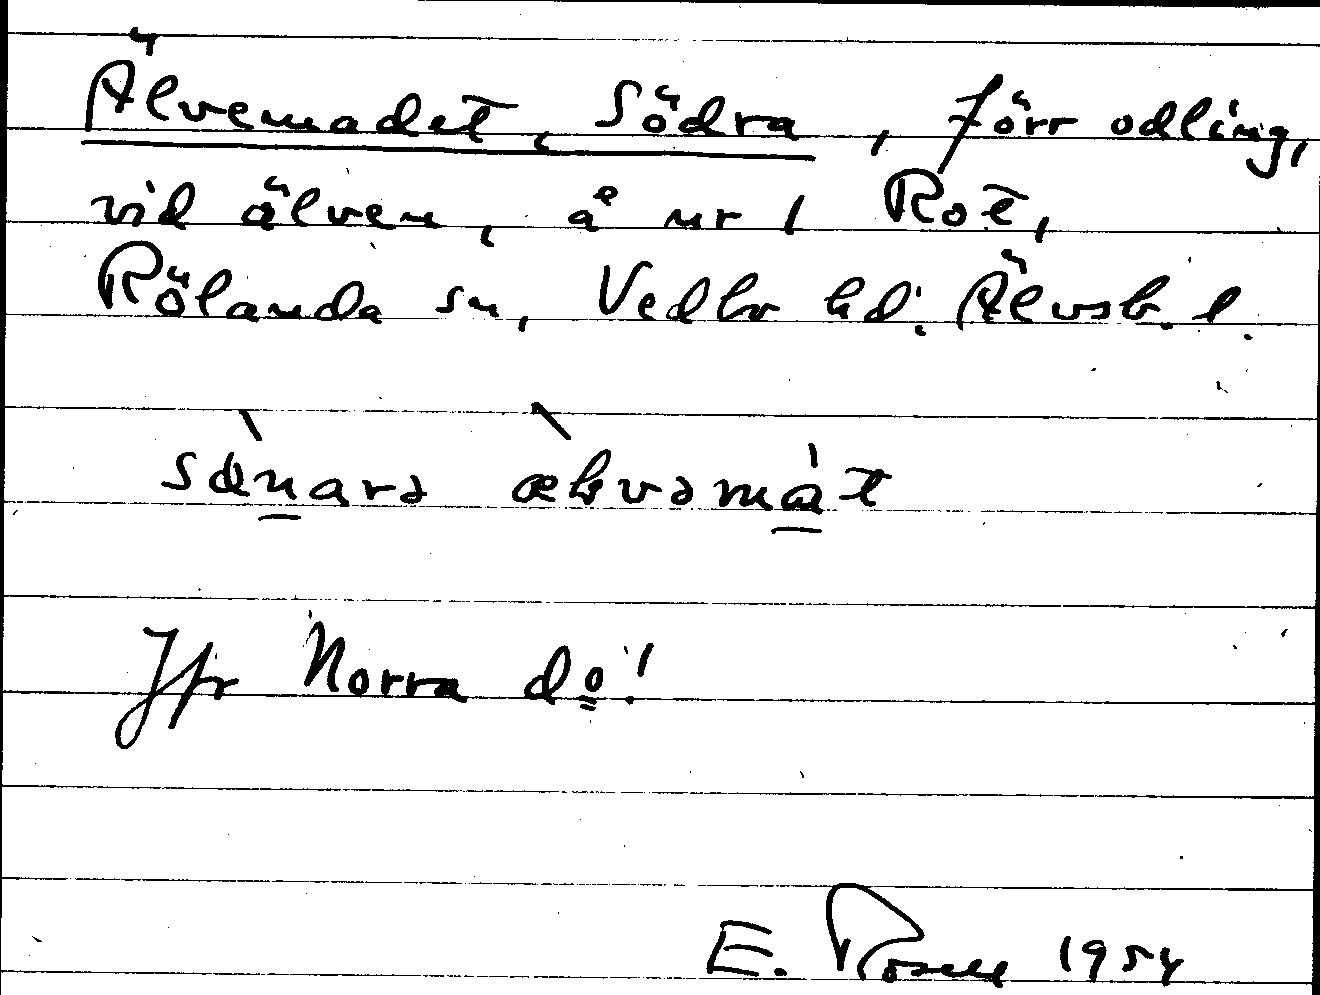 Älvemadet, Södra, förr odling,
vid älven, å nr 1 Röt,
Rölanda sn, Vedbo hd. Älvsb. l.
Jfr Norra do!
E. Rosell 1954